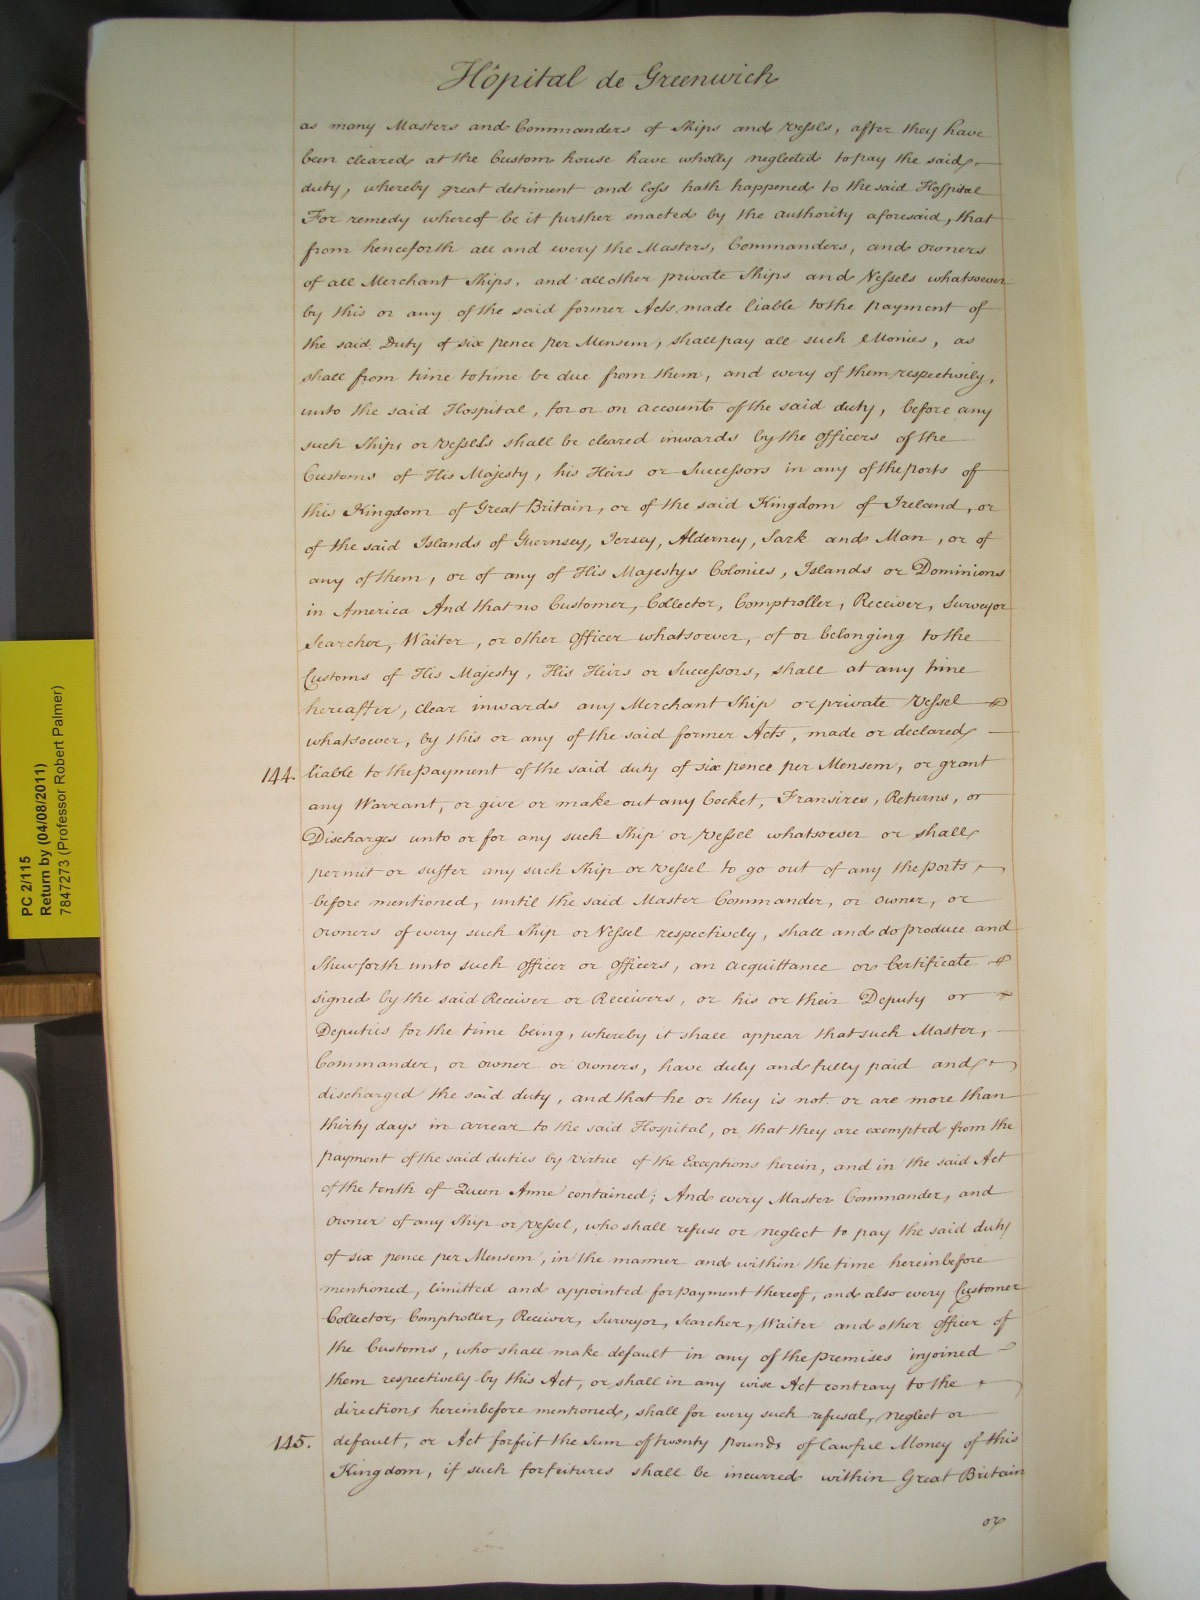 Hôpital de Greenwich
as many Masters and Commanders of Ships and Vessels, after they have
been cleared at the Custom house have wholly neglected to pay the said
duty, whereby great detriment and loss hath happened to the said Hospital
For remedy whereof be it further enacted by the authority aforesaid, that
from henceforth all and every the Masters, Commanders, and owners
of all Merchant Ships, and all other private Ships and Vessels whatsoever
by this or any of the said former Acts, made liable to the payment of
the said Duty of six pence per Mensem, shall pay all such Monies, as
shall from time to time be due from them, and every of them respectively,
unto the said Hospital, for or on account of the said duty, before any
such Ships or Vessels shall be cleared inwards by the officers of the
Customs of His Majesty, his Heirs or Successors in any of the ports of
this Kingdom of Great Britain, or of the said Kingdom of Ireland, or
of the said Islands of Guernsey, Jersey, Alderney, Sark and Man, or of
any of them, or of any of His Majestys Colonies, Islands or Dominions
in America And that no Customer, Collector, Comptroller, Receiver, Surveyor
Searcher, Waiter, or other Officer whatsoever, of or belonging to the
Customs of His Majesty, His Heirs or Successors, shall at any time
hereafter, clear inwards any Merchant Ship or private Vessel
whatsoever, by this or any of the said former Acts, made or declared
144. liable to the payment of the said duty of six pence per Mensem, or grant
any Warrant, or give or make out any Cocket, Transires, Returns, or
Discharges unto or for any such Ship or Vessel whatsoever or shall
permit or suffer any such Ship or Vessel to go out of any the ports
before mentioned, until the said Master Commander, or owner, or
owners of every such Ship or Vessel respectively, shall and do produce and
Shew forth unto such officer or officers, an acquittance or Certificate
signed by the said Receiver or Receivers, or his or their Deputy or
Deputies for the time being, whereby it shall appear that such Master,
Commander, or owner or owners, have duly and fully paid and
discharged the said duty, and that he or they is not or are more than
thirty days in arrear to the said Hospital, or that they are exempted from the
payment of the said duties by virtue of the Exceptions herein, and in the said Act
of the tenth of Queen Anne contained; And every Master Commander, and
owner of any Ship or Vessel, who shall refuse or neglect to pay the said duty
of six pence per Mensem, in the manner and within the time hereinbefore
mentioned, limitted and appointed for payment thereof, and also every Customer
Collector, Comptroller, Receiver, Surveyor, Searcher, Waiter and other officer of
the Customs, who shall make default in any of the premises injoined
them respectively by this Act, or shall in any wise Act contrary to the
directions hereinbefore mentioned, shall for every such refusal, neglect or
145. default, or Act forfeit the Sum of twenty pounds of lawful Money of this
Kingdom, if such forfeitures shall be incurred within Great Britain
or
PC 2/115
Return by (04/08/2011)
7847273 (Professor Robert Palmer)